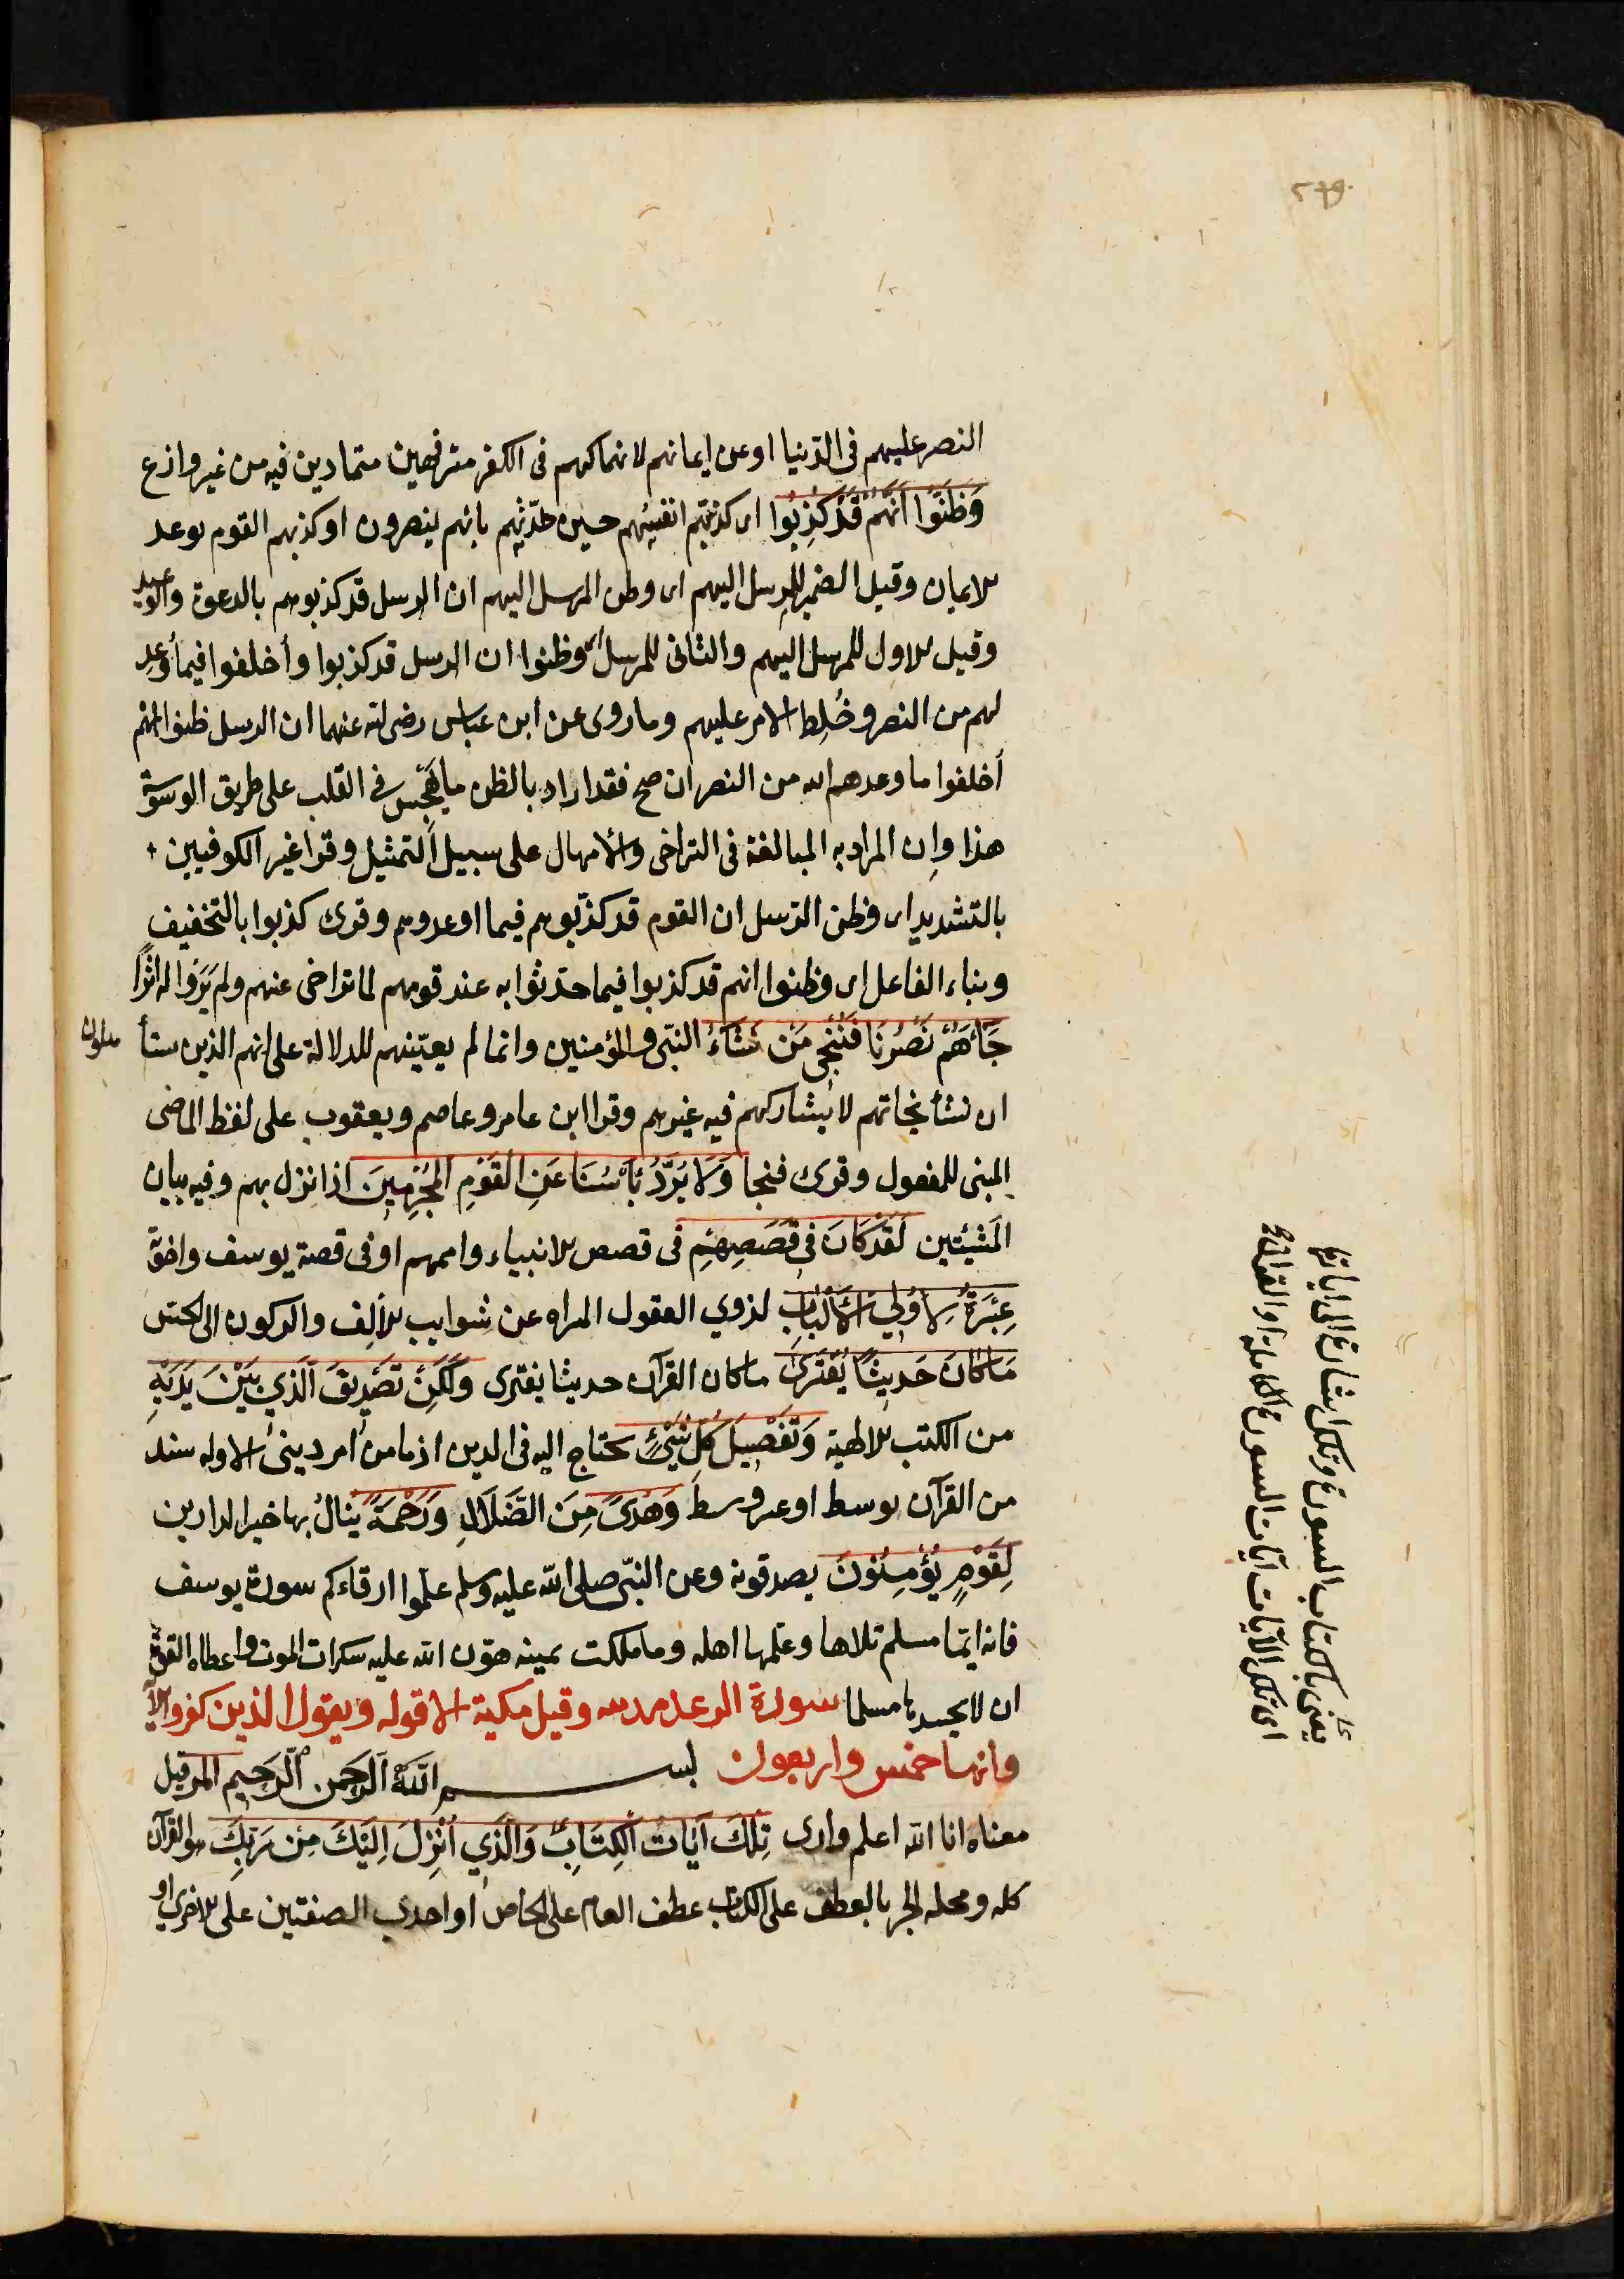 النصر عليهم فى الدّنيا او عن ايمانهم لانهماكهم فى الكفر مترفهين متمادين فيه من غير وازع
وَظَنّوُا اَنَّهُمْ قَدْ كُذِبُوا اى كذبتهم انفسهم حين حدّثتهم بانهم ينصرون او كذبهم القوم بوعد
الايمان وقيل الضمير للمرسل اليهم اى وظن المرسل اليهم ان الرسل قد كذبوهم بالدعوة والوعيد
وقيل الاول للمرسل اليهم والثانى للمرسل اى وظنوا ان الرسل قد كذبوا وأخلفوا فيما أُوعِد
لهم من النصر وخُلِط الامر عليهم وما روى عن ابن عباس رضى الله عنهما ان الرسل ظنوا انهم
أخلفوا ما وعدهم الله من النصر ان صح فقد اراد بالظن ما يَهْجِس فى القلب على طريق الوسوسة
هذا وإن المراد به المبالغة فى التراخى والامهال على سبيل التمثيل وقرا غير الكوفيين
بالتشديد اى وظن الرّسل ان القوم قد كذّبوهم فيما اوعدوهم وقرى كذبوا بالتخفيف
وبناء الفاعل اى وظنوا انهم قد كذبوا فيما حدّثوا به عند قومهم لما تراخى عنهم ولم يَرَوا له اثرًا
جَاءَهُمْ نَصْرُنَا فَنُنْجِى مَنْ نَشَاءُ النبّى والمؤمنين وانما لم يعيّنهم للدلالة على انهم الذين يستأهلون
ان نشأ نجاتهم لا يشاركهم فيه غيرهم وقرا ابن عامر وعاصم ويعقوب على لفظ الماضى
المبنى للمفعول وقرى فنجا وَلَا يُرَدُّ بَأْسُنَا عَنِ الْقَوْمِ الْمُجْرِمِينَ اذا نزل بهم وفيه بيان
المَشيئتين لَقَدْ كَانَ فِى قَصَصِهِمْ فى قصص الانبياء واممهم او فى قصة يوسف واخوته
عِبْرَةٌ لِاُولِي الْاَلْبَابِ لذوي العقول المبراه عن شوايب الاَلِف والركون الى الحسّ
مَا كَانَ حَدِيثًا يُفْتَرَى ما كان القرآن حديثا يفترى وَلَكِنْ تَصْدِيقَ الَّذِي بَيْنَ يَدَيْهِ
من الكتب الالهية وَتَفْصِيلَ كُلِّ شَيْءٍ يحتاج اليه فى الدين اذ ما من امر دينى الا وله سند
من القرآن بوسط او غير وسط وَهُدًى مِنَ الضَّلَالِ وَرَحْمَةً ينالُ بها خير الدارين
لِقَوْمٍ يُؤْمِنُونَ يصدقونه وعن النبّى صلى الله عليه وسلم علّموا ارقاءكم سورة يوسف
فانه ايّما مسلم تلاها وعلمها اهله وما ملكت يمينه هوّن الله عليه سكرات الموت واعطاه القوّة
ان لا يحسد بها مسلما سورة الرعد مدنيه وقيل مكية الا قوله ويقول الذين كفروا الآية
وانها خمس واربعون بســـم اللّٰه الرَّحمن الرَّحيم المر قيل
معناه انا الله اعلم وارى تِلْكَ آيَاتُ الْكِتَابِ وَالَّذِي اُنْزِلَ اِلَيْكَ مِنْ رَبِّكَ هو القرآن
كله ومحله الجر بالعطف على الكتاب عطف العام على الخاص او احدى الصفتين على الاخرى او
يعنى بالكتاب السورة وتلك اشارة الى اياتها
اى تلك الآيات آيات السورة الكاملة او القرآن